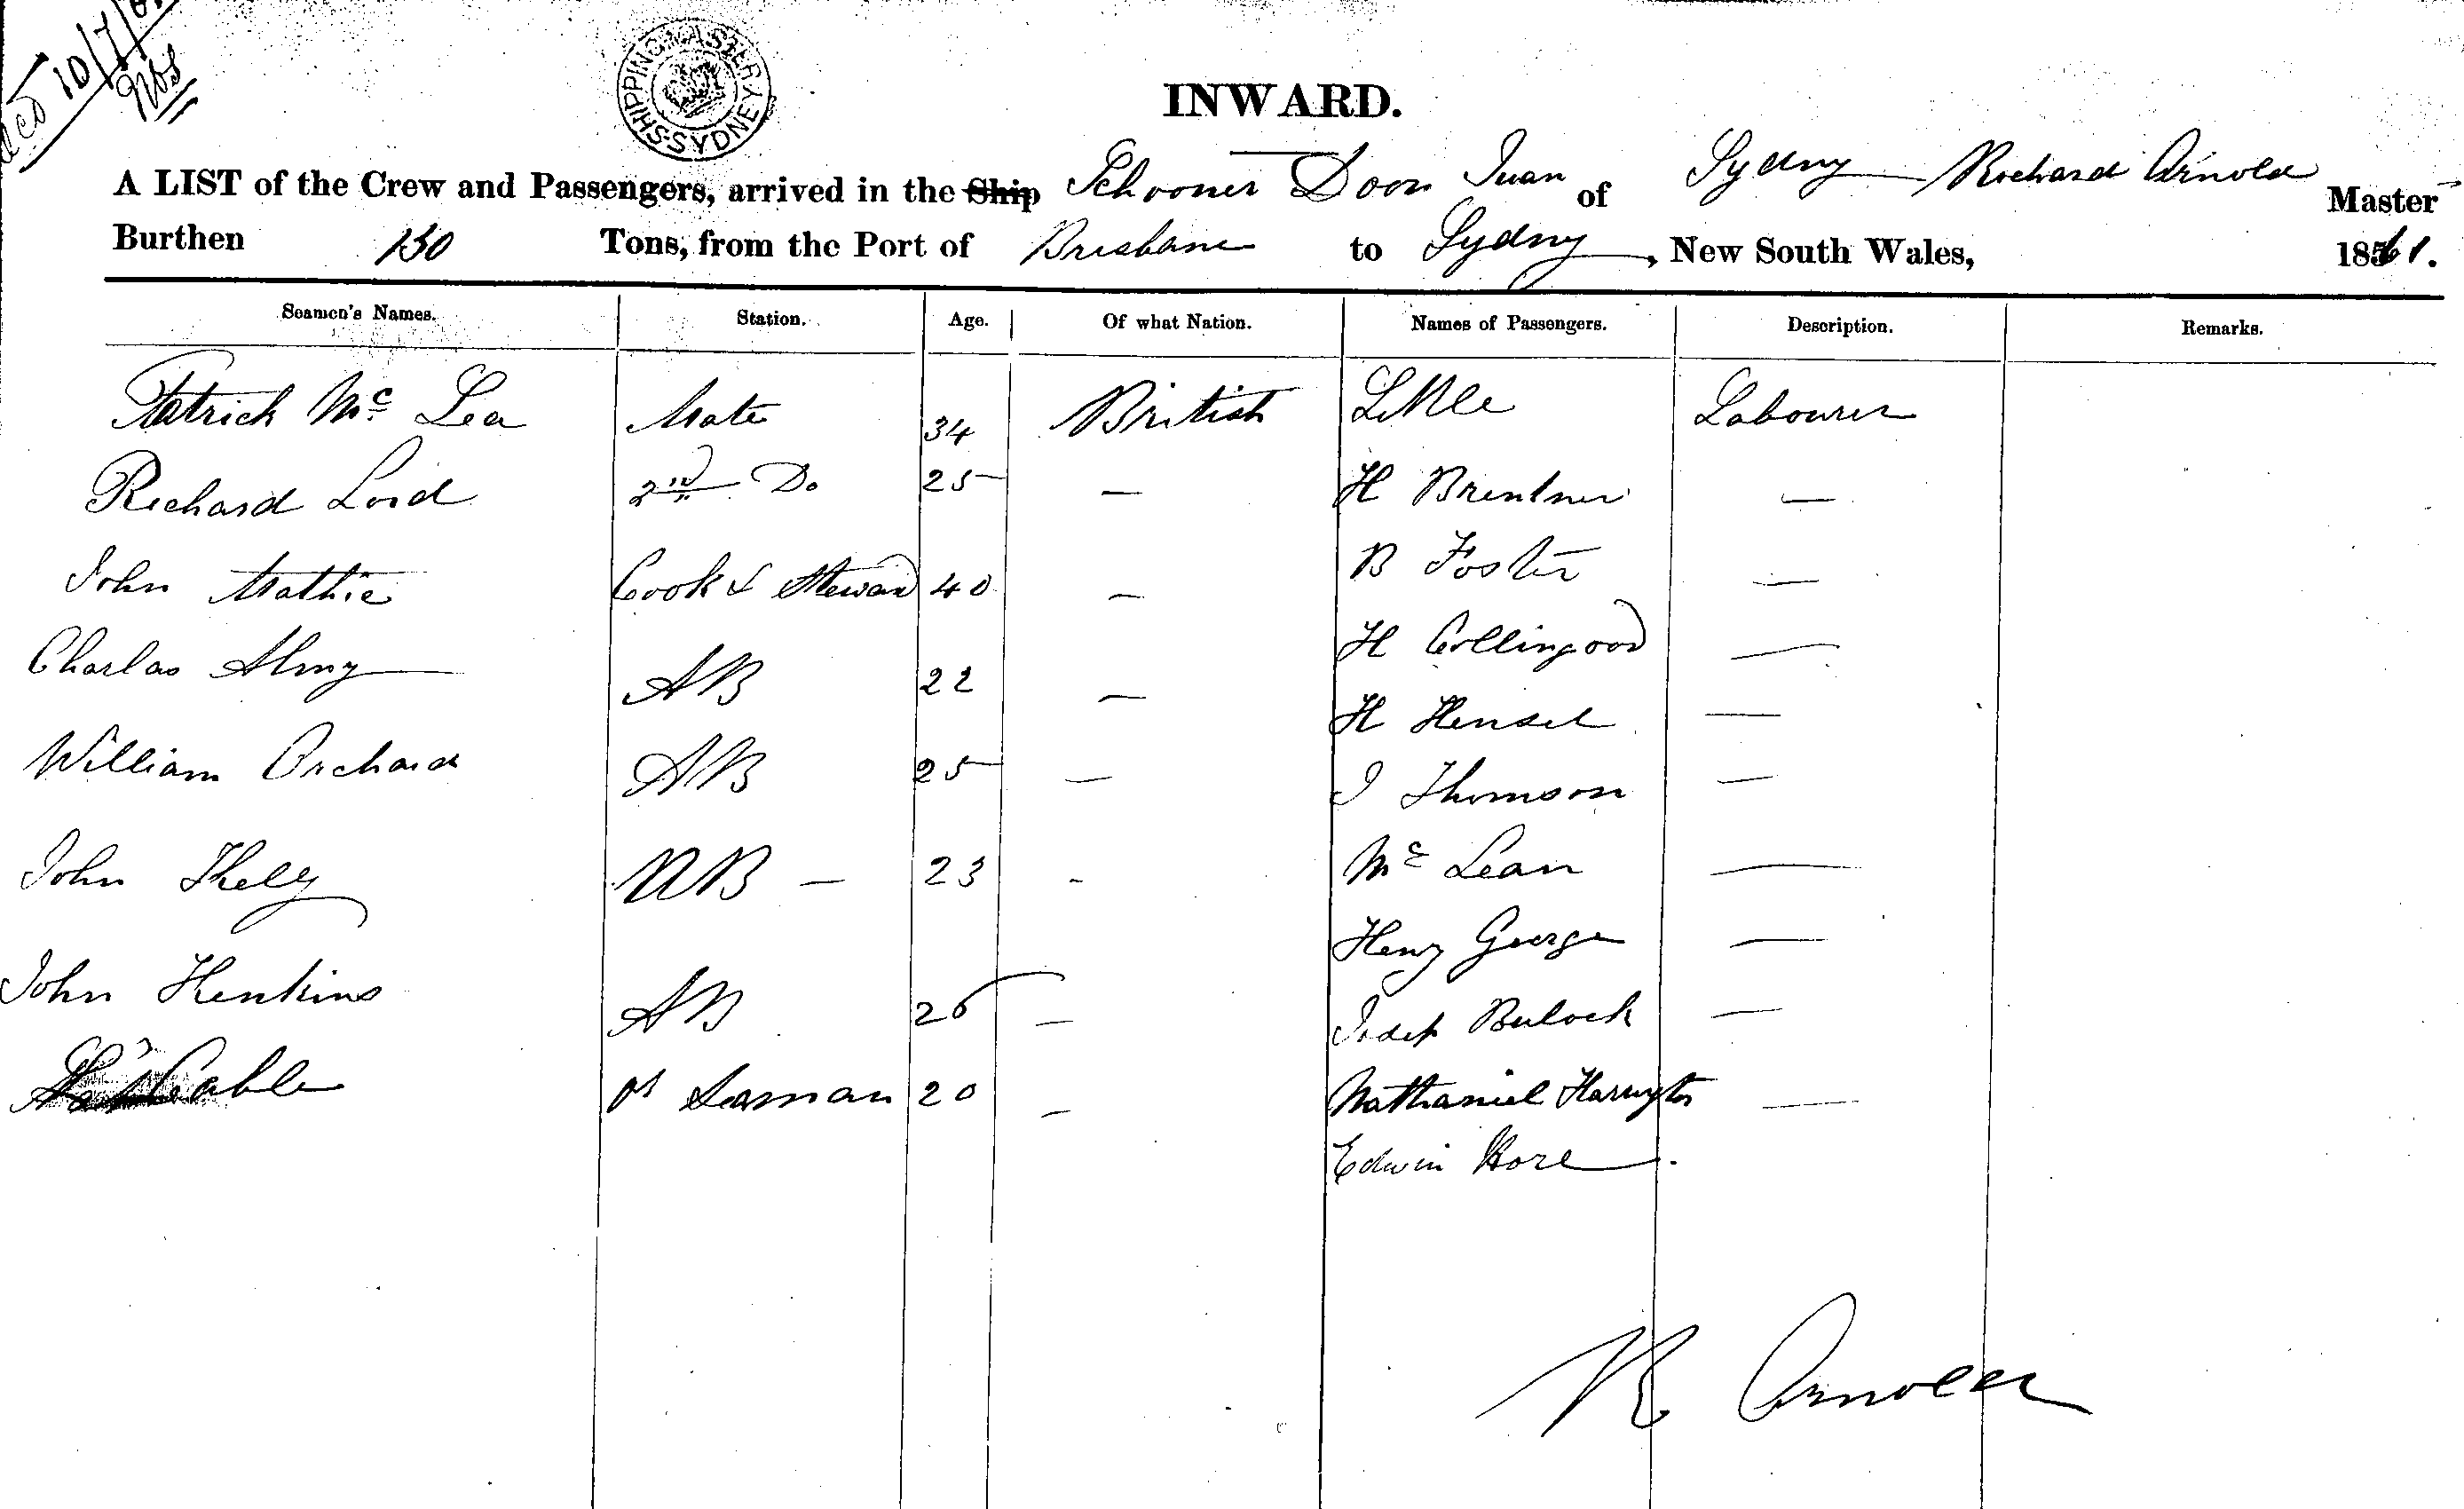 10/7/61
SHIPPING MASTER SYDNEY
INWARD.
A LIST of the Crew and Passengers, arrived in the Ship Schooner Doon Juan of Sydny Richard Arnold Master
Burthen 130 Tons, from the Port of Brisbane to Sydny, New South Wales, 1861.
Seamen's Names. Station. Age. Of what Nation. Names of Passengers. Description. Remarks.
Patrick Mc Lea Mate 34 British Little Labourer
Richard Lord 2nd Do 25 — H Brentner —
John Mathie Cook & Steward 40 — B Foster —
Charlas Almy AB 22 — H Collingood —
William Orchard AB 25 — H Hensel —
John Kelly AB — 23 - J Thomson —
John Henkins AB 26 — Mc Lean —
Cable Os Seaman 20 — Henry George —
Bulock —
Nathaniel Harington —
Edwin Hore
R Arnold